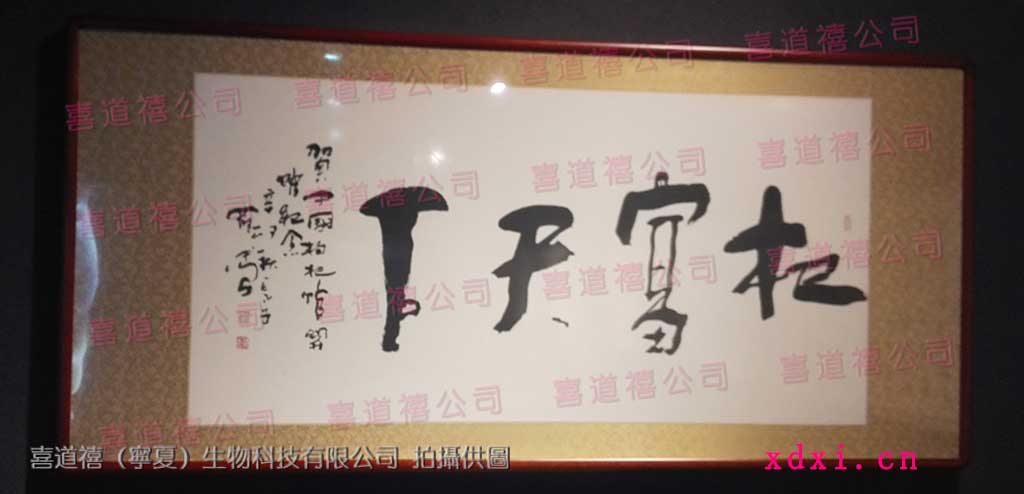 杞富天下
賀中國枸杞館開
館紀念
喜道禧公司
喜道禧公司
喜道禧公司
喜道禧公司
喜道禧公司
喜道禧公司
喜道禧公司
喜道禧公司
喜道禧公司
喜道禧公司
喜道禧公司
喜道禧公司
喜道禧公司
喜道禧公司
喜道禧公司
喜道禧公司
喜道禧（寧夏）生物科技有限公司 拍攝供圖
xdxi.cn